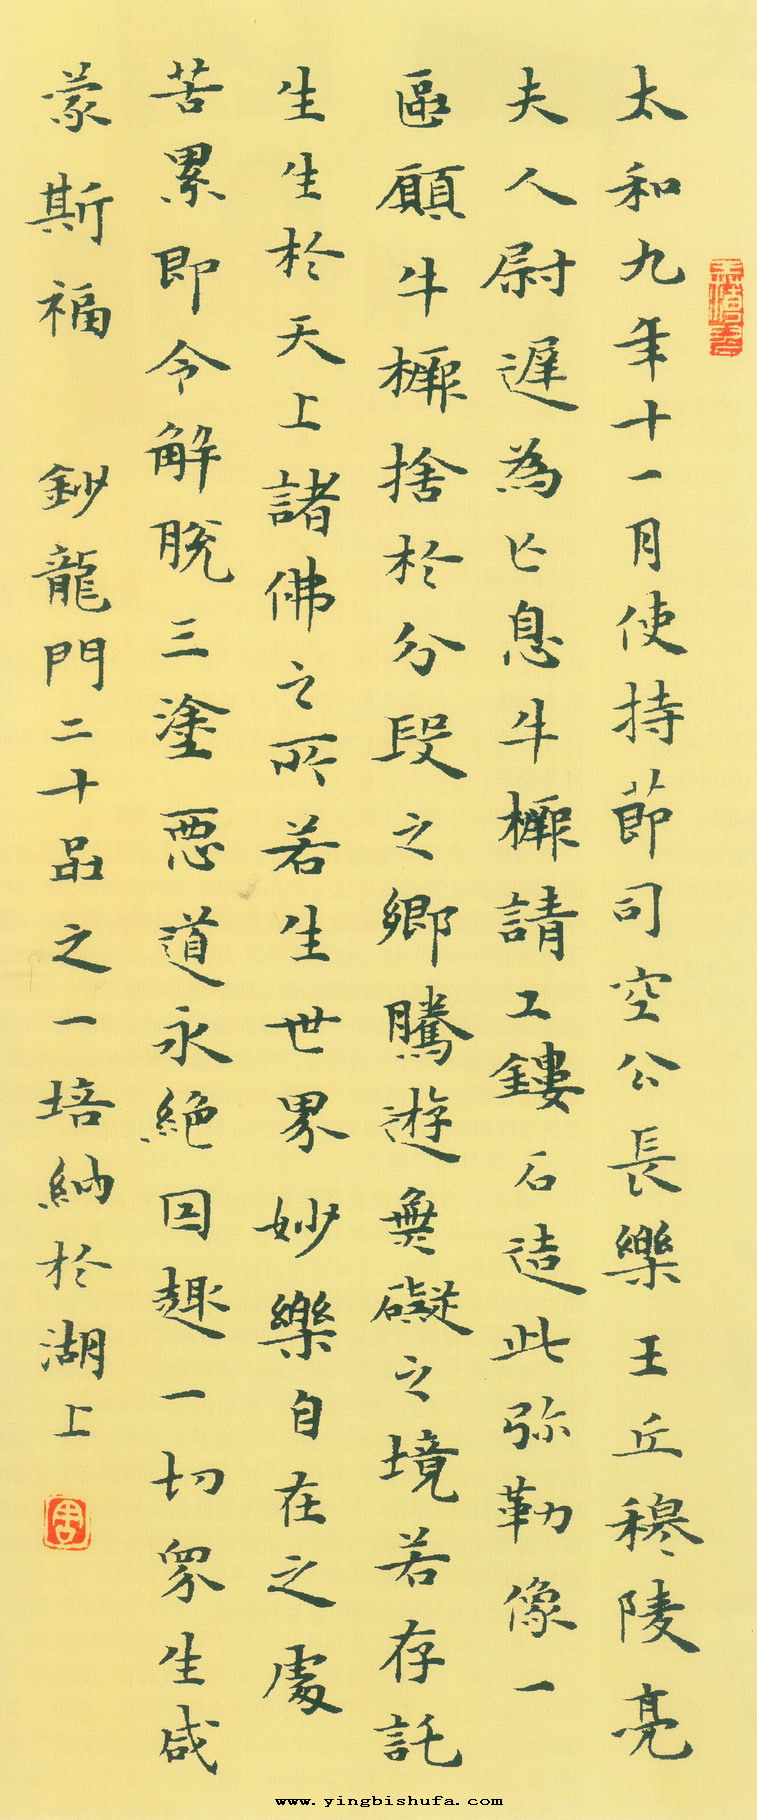 太和九年十一月使持節司空公長樂王丘穆陵亮
夫人尉遲為亡息牛橛請工鏤石造此弥勒像一
區願牛橛捨於分段之鄉騰遊無礙之境若存託
生生於天上諸佛之所若生世界妙樂自在之處
苦累即令解脫三塗惡道永絕因趣一切眾生咸
蒙斯福 鈔龍門二十品之一培納於湖上
www.yingbishufa.com